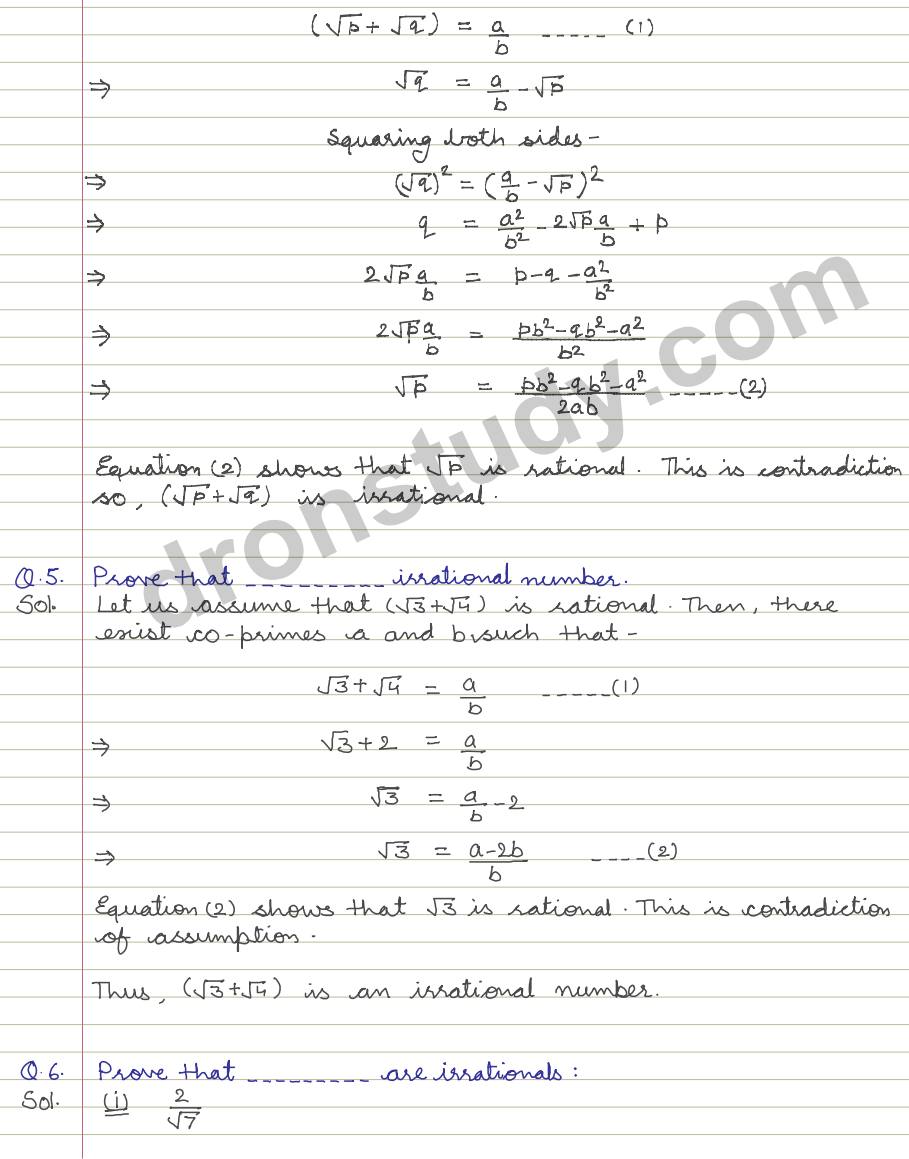 (√p + √q) = a/b ----- (1)
⇒ √q = a/b - √p
Squaring both sides -
⇒ (√q)² = (a/b - √p)²
⇒ q = a²/b² - 2√p a/b + p
⇒ 2√p a/b = p - q - a²/b²
⇒ 2√p a/b = pb² - qb² - a² / b²
⇒ √p = pb² - qb² - a² / 2ab ------(2)
Equation (2) shows that √p is rational. This is contradiction
so, (√p + √q) is irrational.
Q.5. Prove that __________ irrational number.
Sol. Let us assume that (√3+√4) is rational. Then, there
exist co-primes a and b such that -
√3 + √4 = a/b -----(1)
⇒ √3 + 2 = a/b
⇒ √3 = a/b - 2
⇒ √3 = a-2b/b ----(2)
Equation (2) shows that √3 is rational. This is contradiction
of assumption.
Thus, (√3+√4) is an irrational number.
Q.6. Prove that _________ are irrationals :
Sol. (i) 2/√7
dronstudy.com